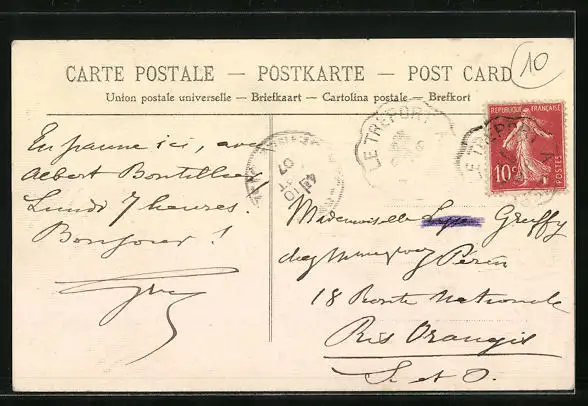 10
CARTE POSTALE — POSTKARTE — POST CARD
Union postale universelle — Briefkaart — Cartolina postale — Brefkort
REPUBLIQUE FRANÇAISE
10c
POSTES
LE TREPORT A
LE TREPORT
07
En panne ici, avec
Albert Bontillier
Lundi 7 heures.
Bonjour !
Mademoiselle Gruffy
chez Perin
18 Route Nationale
Ris Orangis
S et O.